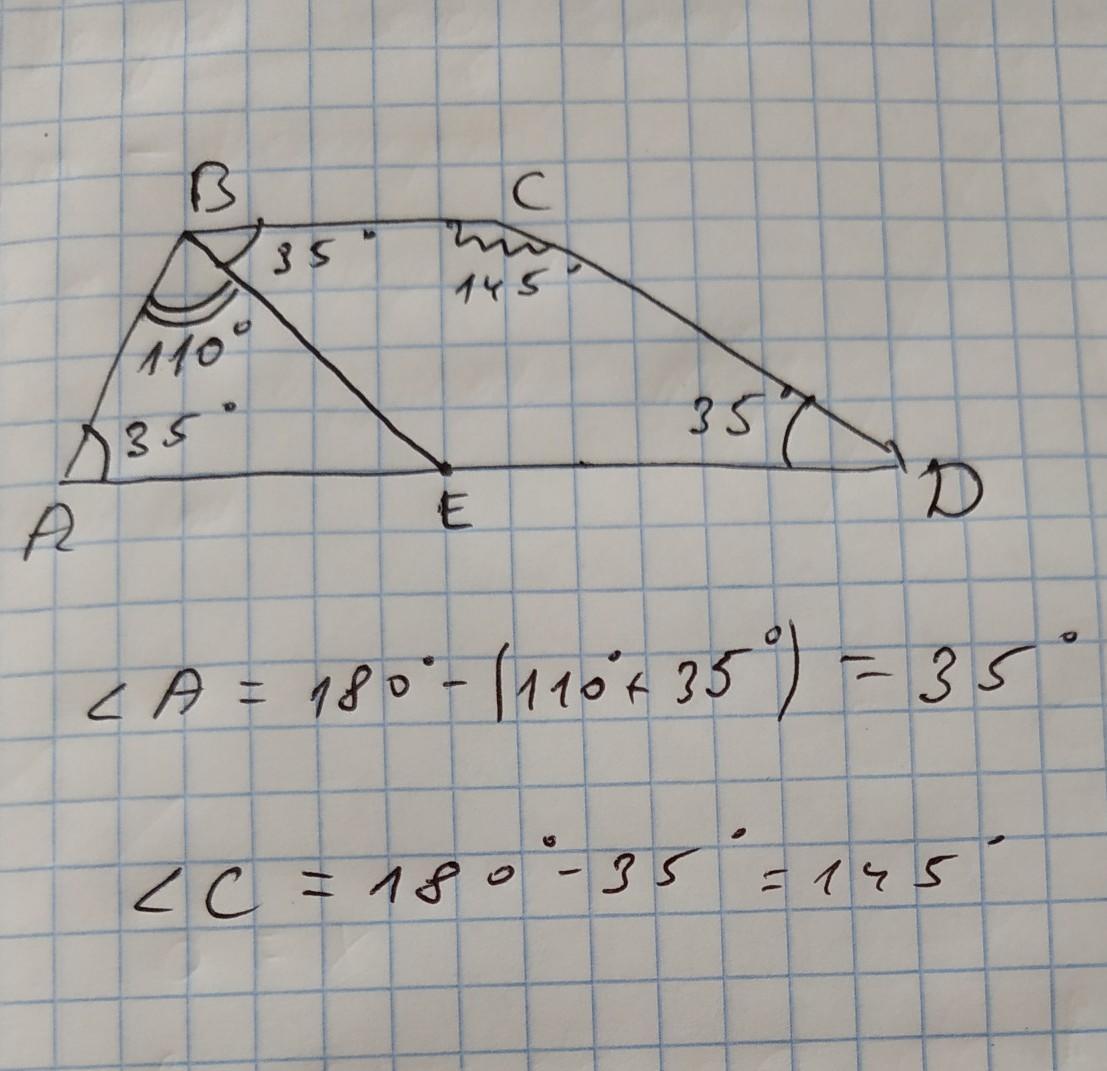 B C
35°
145°
110°
35°
35°
A E D
∠A = 180° - (110° + 35°) = 35°
∠C = 180° - 35° = 145°